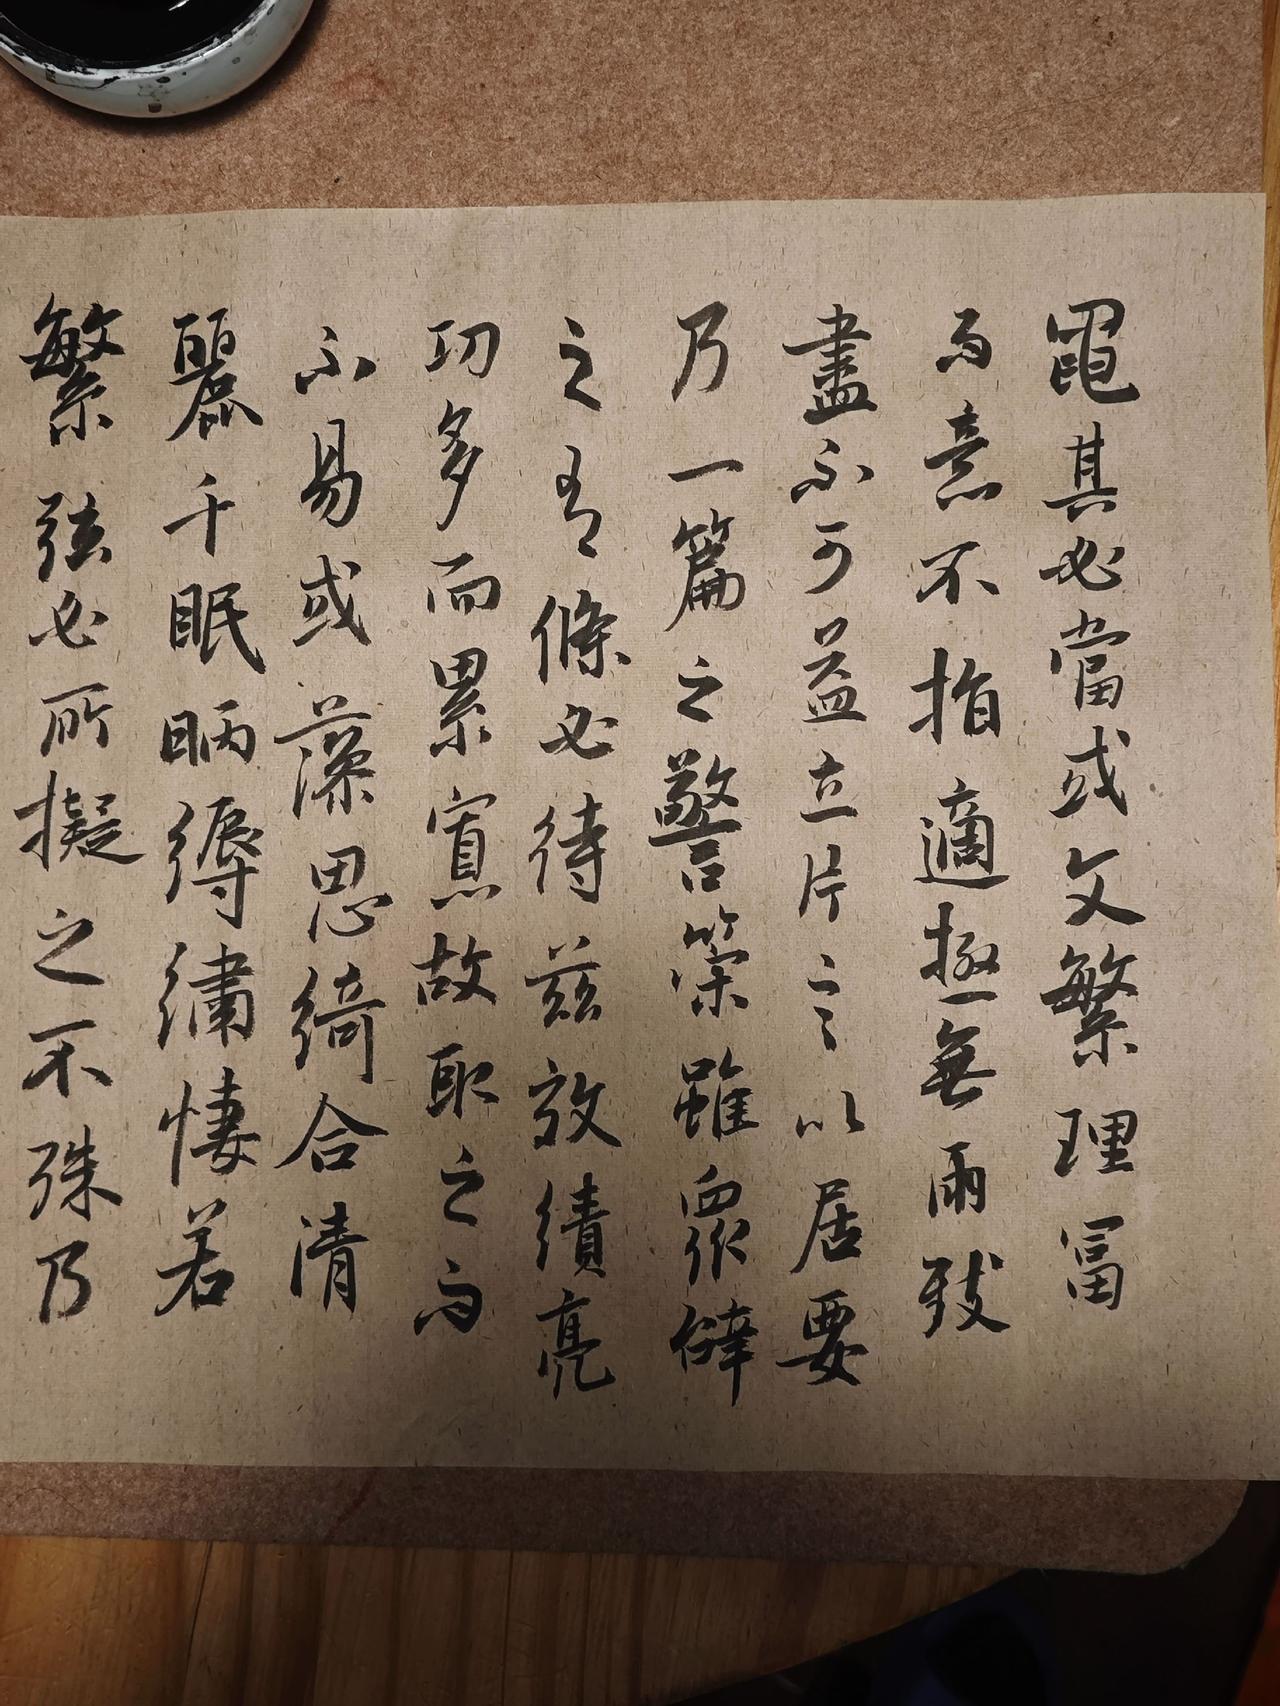 黽其必當或文繁理富
而意不指適極無兩致
盡不可益立片言以居要
乃一篇之警策雖眾辭
之有條必待茲效績亮
功多而累寡故取之而
不易或藻思綺合清
麗千眠昞縟繡悽若
繁弦必所擬之不殊乃